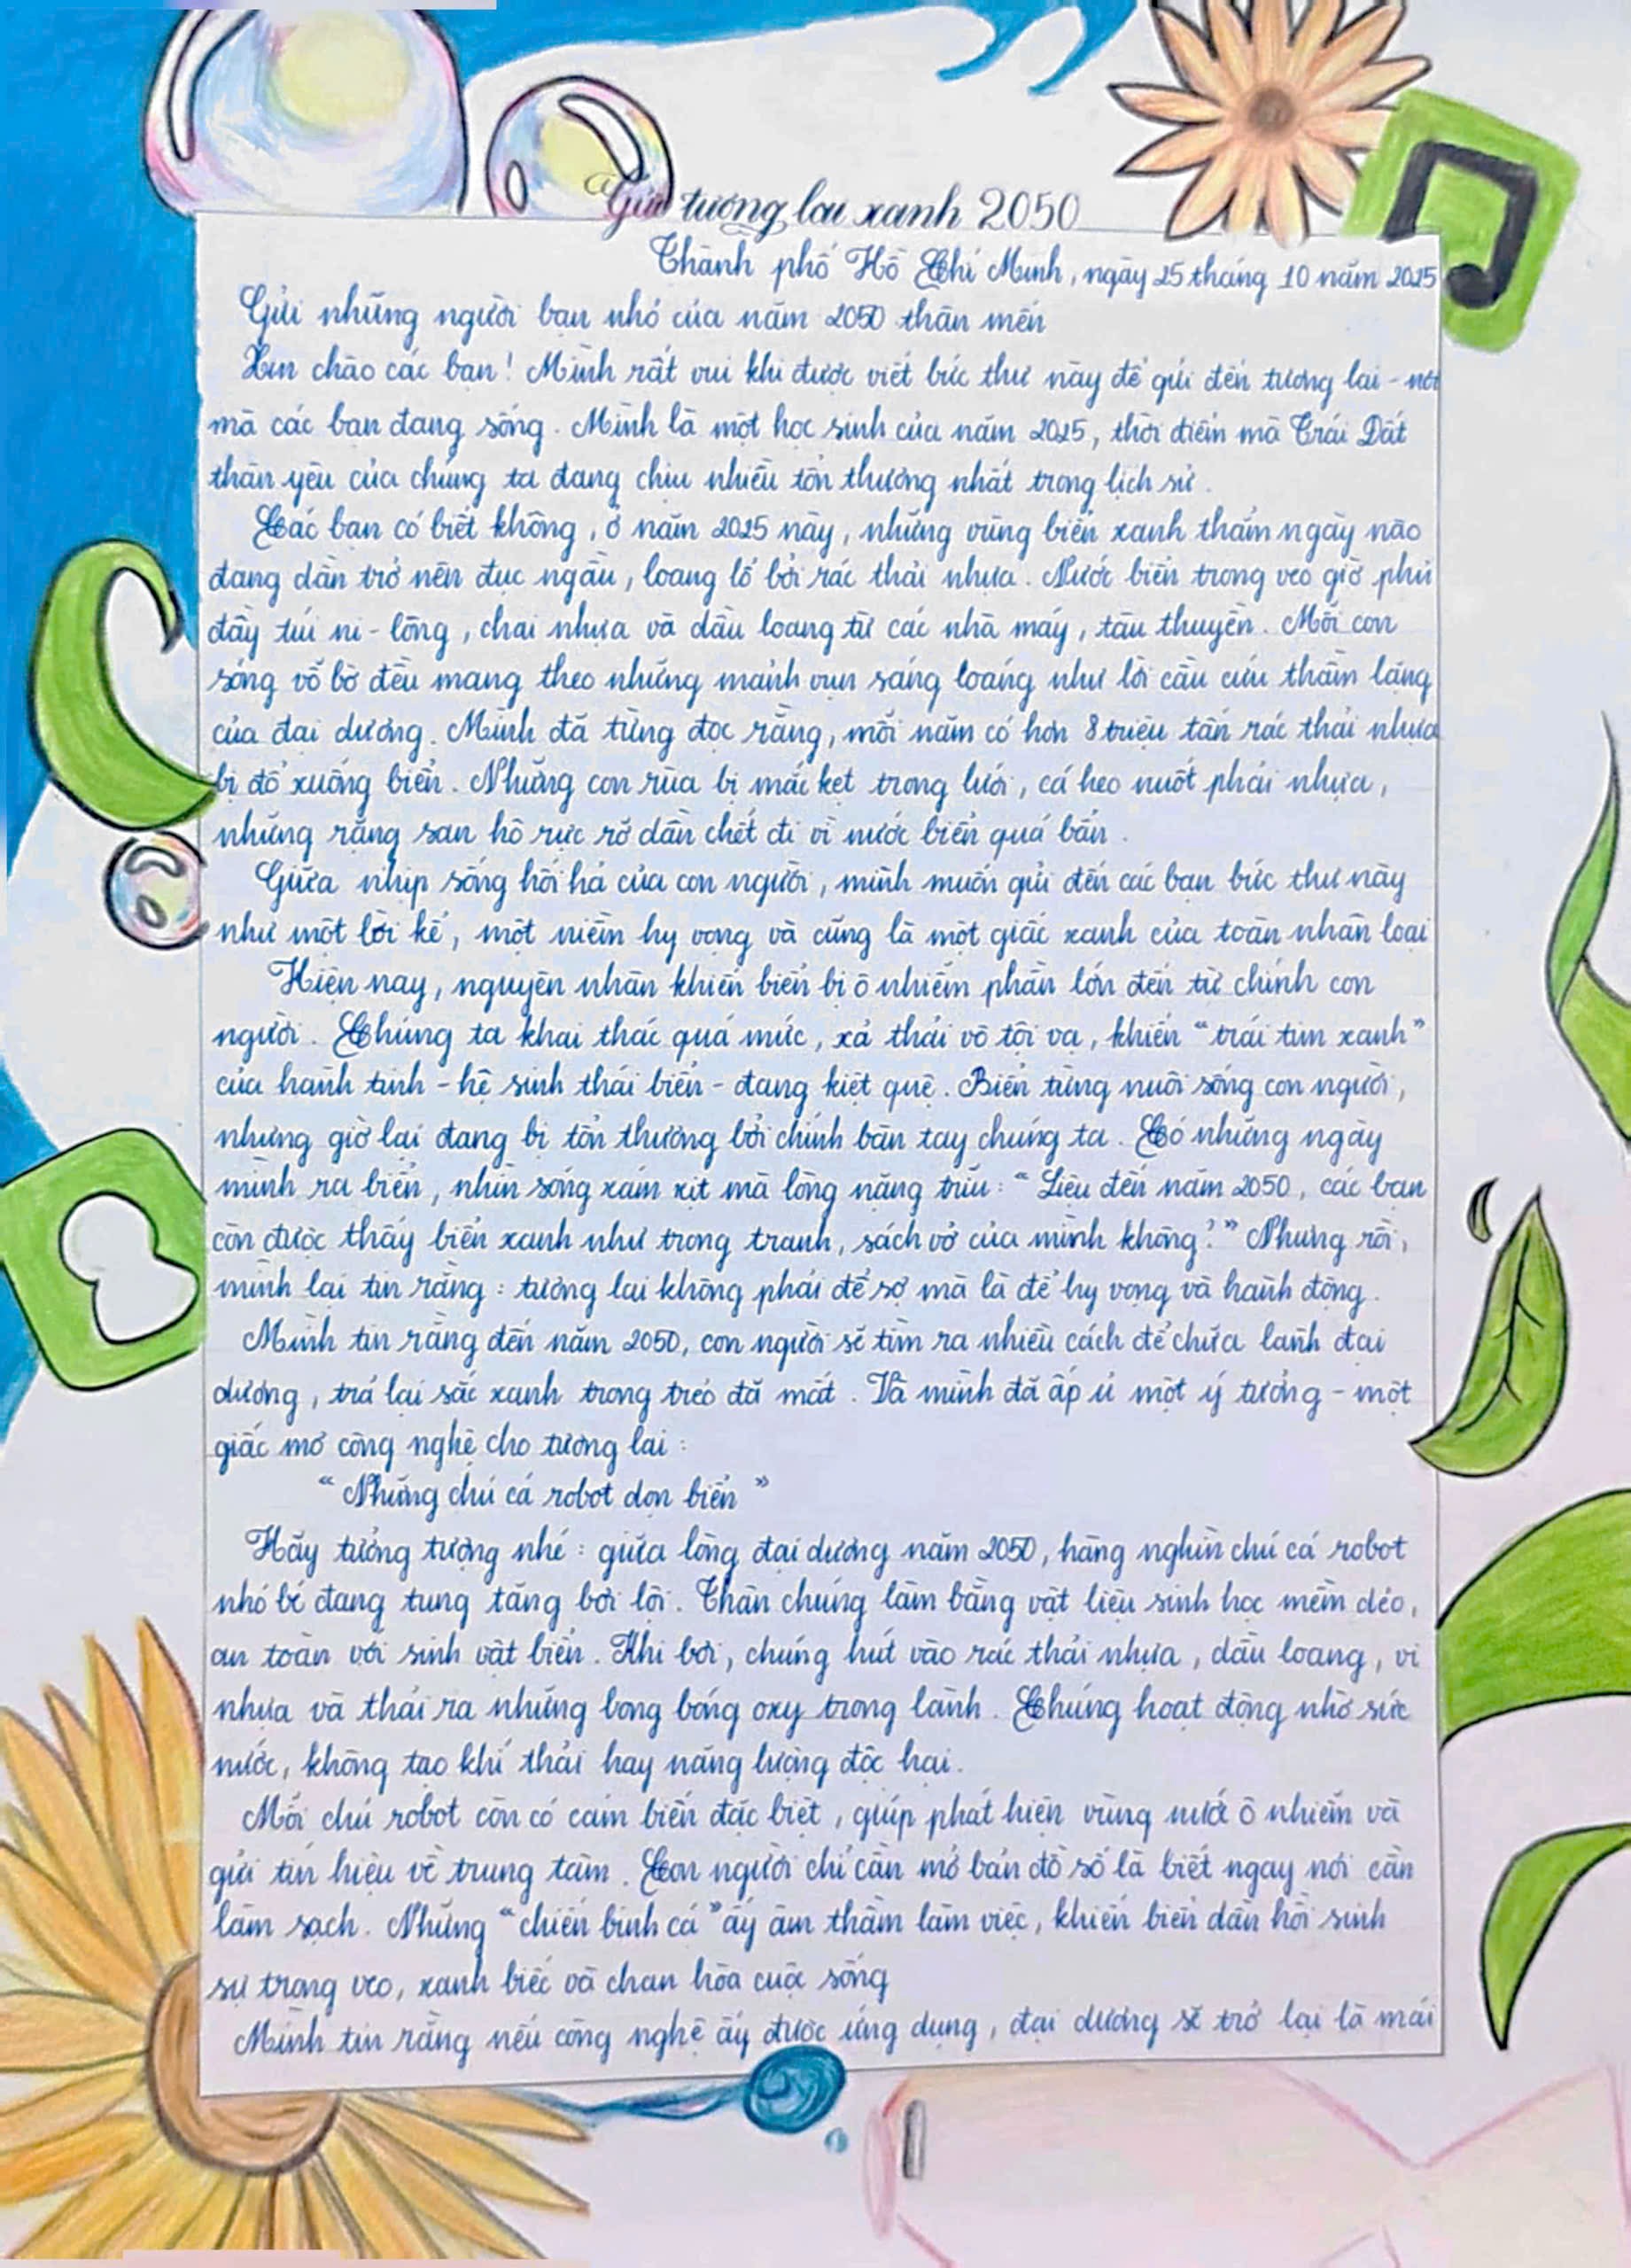 Gửi tương lai xanh 2050
Thành phố Hồ Chí Minh, ngày 25 tháng 10 năm 2025
Gửi những người bạn nhỏ của năm 2050 thân mến
Xin chào các bạn! Mình rất vui khi được viết bức thư này để gửi đến tương lai - nơi
mà các bạn đang sống. Mình là một học sinh của năm 2025, thời điểm mà Trái Đất
thân yêu của chúng ta đang chịu nhiều tổn thương nhất trong lịch sử.
Các bạn có biết không, ở năm 2025 này, những vùng biển xanh thẳm ngày nào
đang dần trở nên đục ngầu, loang lổ bởi rác thải nhựa. Nước biển trong veo giờ phủ
đầy túi ni-lông, chai nhựa và dầu loang từ các nhà máy, tàu thuyền. Mỗi con
sóng vỗ bờ đều mang theo những mảnh vụn sáng loáng như lời cầu cứu thầm lặng
của đại dương. Mình đã từng đọc rằng, mỗi năm có hơn 8 triệu tấn rác thải nhựa
bị đổ xuống biển. Những con rùa bị mắc kẹt trong lưới, cá heo nuốt phải nhựa,
những rặng san hô rực rỡ dần chết đi vì nước biển quá bẩn.
Giữa nhịp sống hối hả của con người, mình muốn gửi đến các bạn bức thư này
như một lời kể, một niềm hy vọng và cũng là một giấc xanh của toàn nhân loại
Hiện nay, nguyên nhân khiến biển bị ô nhiễm phần lớn đến từ chính con
người. Chúng ta khai thác quá mức, xả thải vô tội vạ, khiến "trái tim xanh"
của hành tinh - hệ sinh thái biển - đang kiệt quệ. Biển từng nuôi sống con người,
nhưng giờ lại đang bị tổn thương bởi chính bàn tay chúng ta. Có những ngày
mình ra biển, nhìn sóng xám xịt mà lòng nặng trĩu: "Liệu đến năm 2050, các bạn
còn được thấy biển xanh như trong tranh, sách vở của mình không?" Nhưng rồi,
mình lại tin rằng: tương lai không phải để sợ mà là để hy vọng và hành động.
Mình tin rằng đến năm 2050, con người sẽ tìm ra nhiều cách để chữa lành đại
dương, trả lại sắc xanh trong trẻo đã mất. Và mình đã ấp ủ một ý tưởng - một
giấc mơ công nghệ cho tương lai:
"Những chú cá robot dọn biển"
Hãy tưởng tượng nhé: giữa lòng đại dương năm 2050, hàng nghìn chú cá robot
nhỏ bé đang tung tăng bơi lội. Thân chúng làm bằng vật liệu sinh học mềm dẻo,
an toàn với sinh vật biển. Khi bơi, chúng hút vào rác thải nhựa, dầu loang, vi
nhựa và thải ra những bong bóng oxy trong lành. Chúng hoạt động nhờ sức
nước, không tạo khí thải hay năng lượng độc hại.
Mỗi chú robot còn có cảm biến đặc biệt, giúp phát hiện vùng nước ô nhiễm và
gửi tín hiệu về trung tâm. Con người chỉ cần mở bản đồ số là biết ngay nơi cần
làm sạch. Những "chiến binh cá" ấy âm thầm làm việc, khiến biển dần hồi sinh
sự trong veo, xanh biếc và chan hòa cuộc sống
Mình tin rằng nếu công nghệ ấy được ứng dụng, đại dương sẽ trở lại là mái